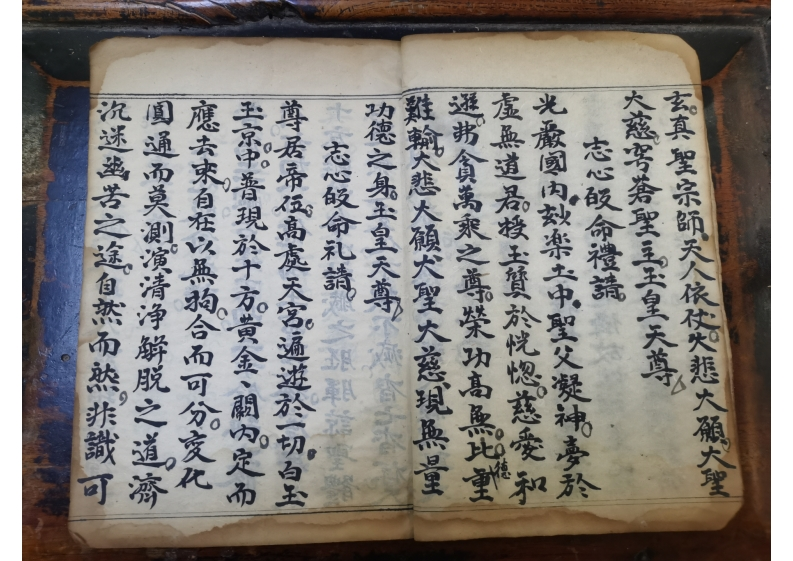 玄真聖宗師天人依仗大悲大願大聖
大慈穹蒼聖主玉皇天尊
志心皈命禮請
光嚴國內玅樂土中聖父凝神夢於
虛無道君授玉質於恍惚慈愛和
遜弗貪萬乘之尊榮功高無比德重
難輸大悲大願大聖大慈現無量
功德之身玉皇天尊
志心皈命礼請
尊居帝位高處天宮遍遊於一切白玉
玉京中普現於十方黃金闕內定而
應去來自在以無拘合而可分變化
圓通而莫測演清淨解脫之道濟
沉迷幽苦之途自然而然非識可